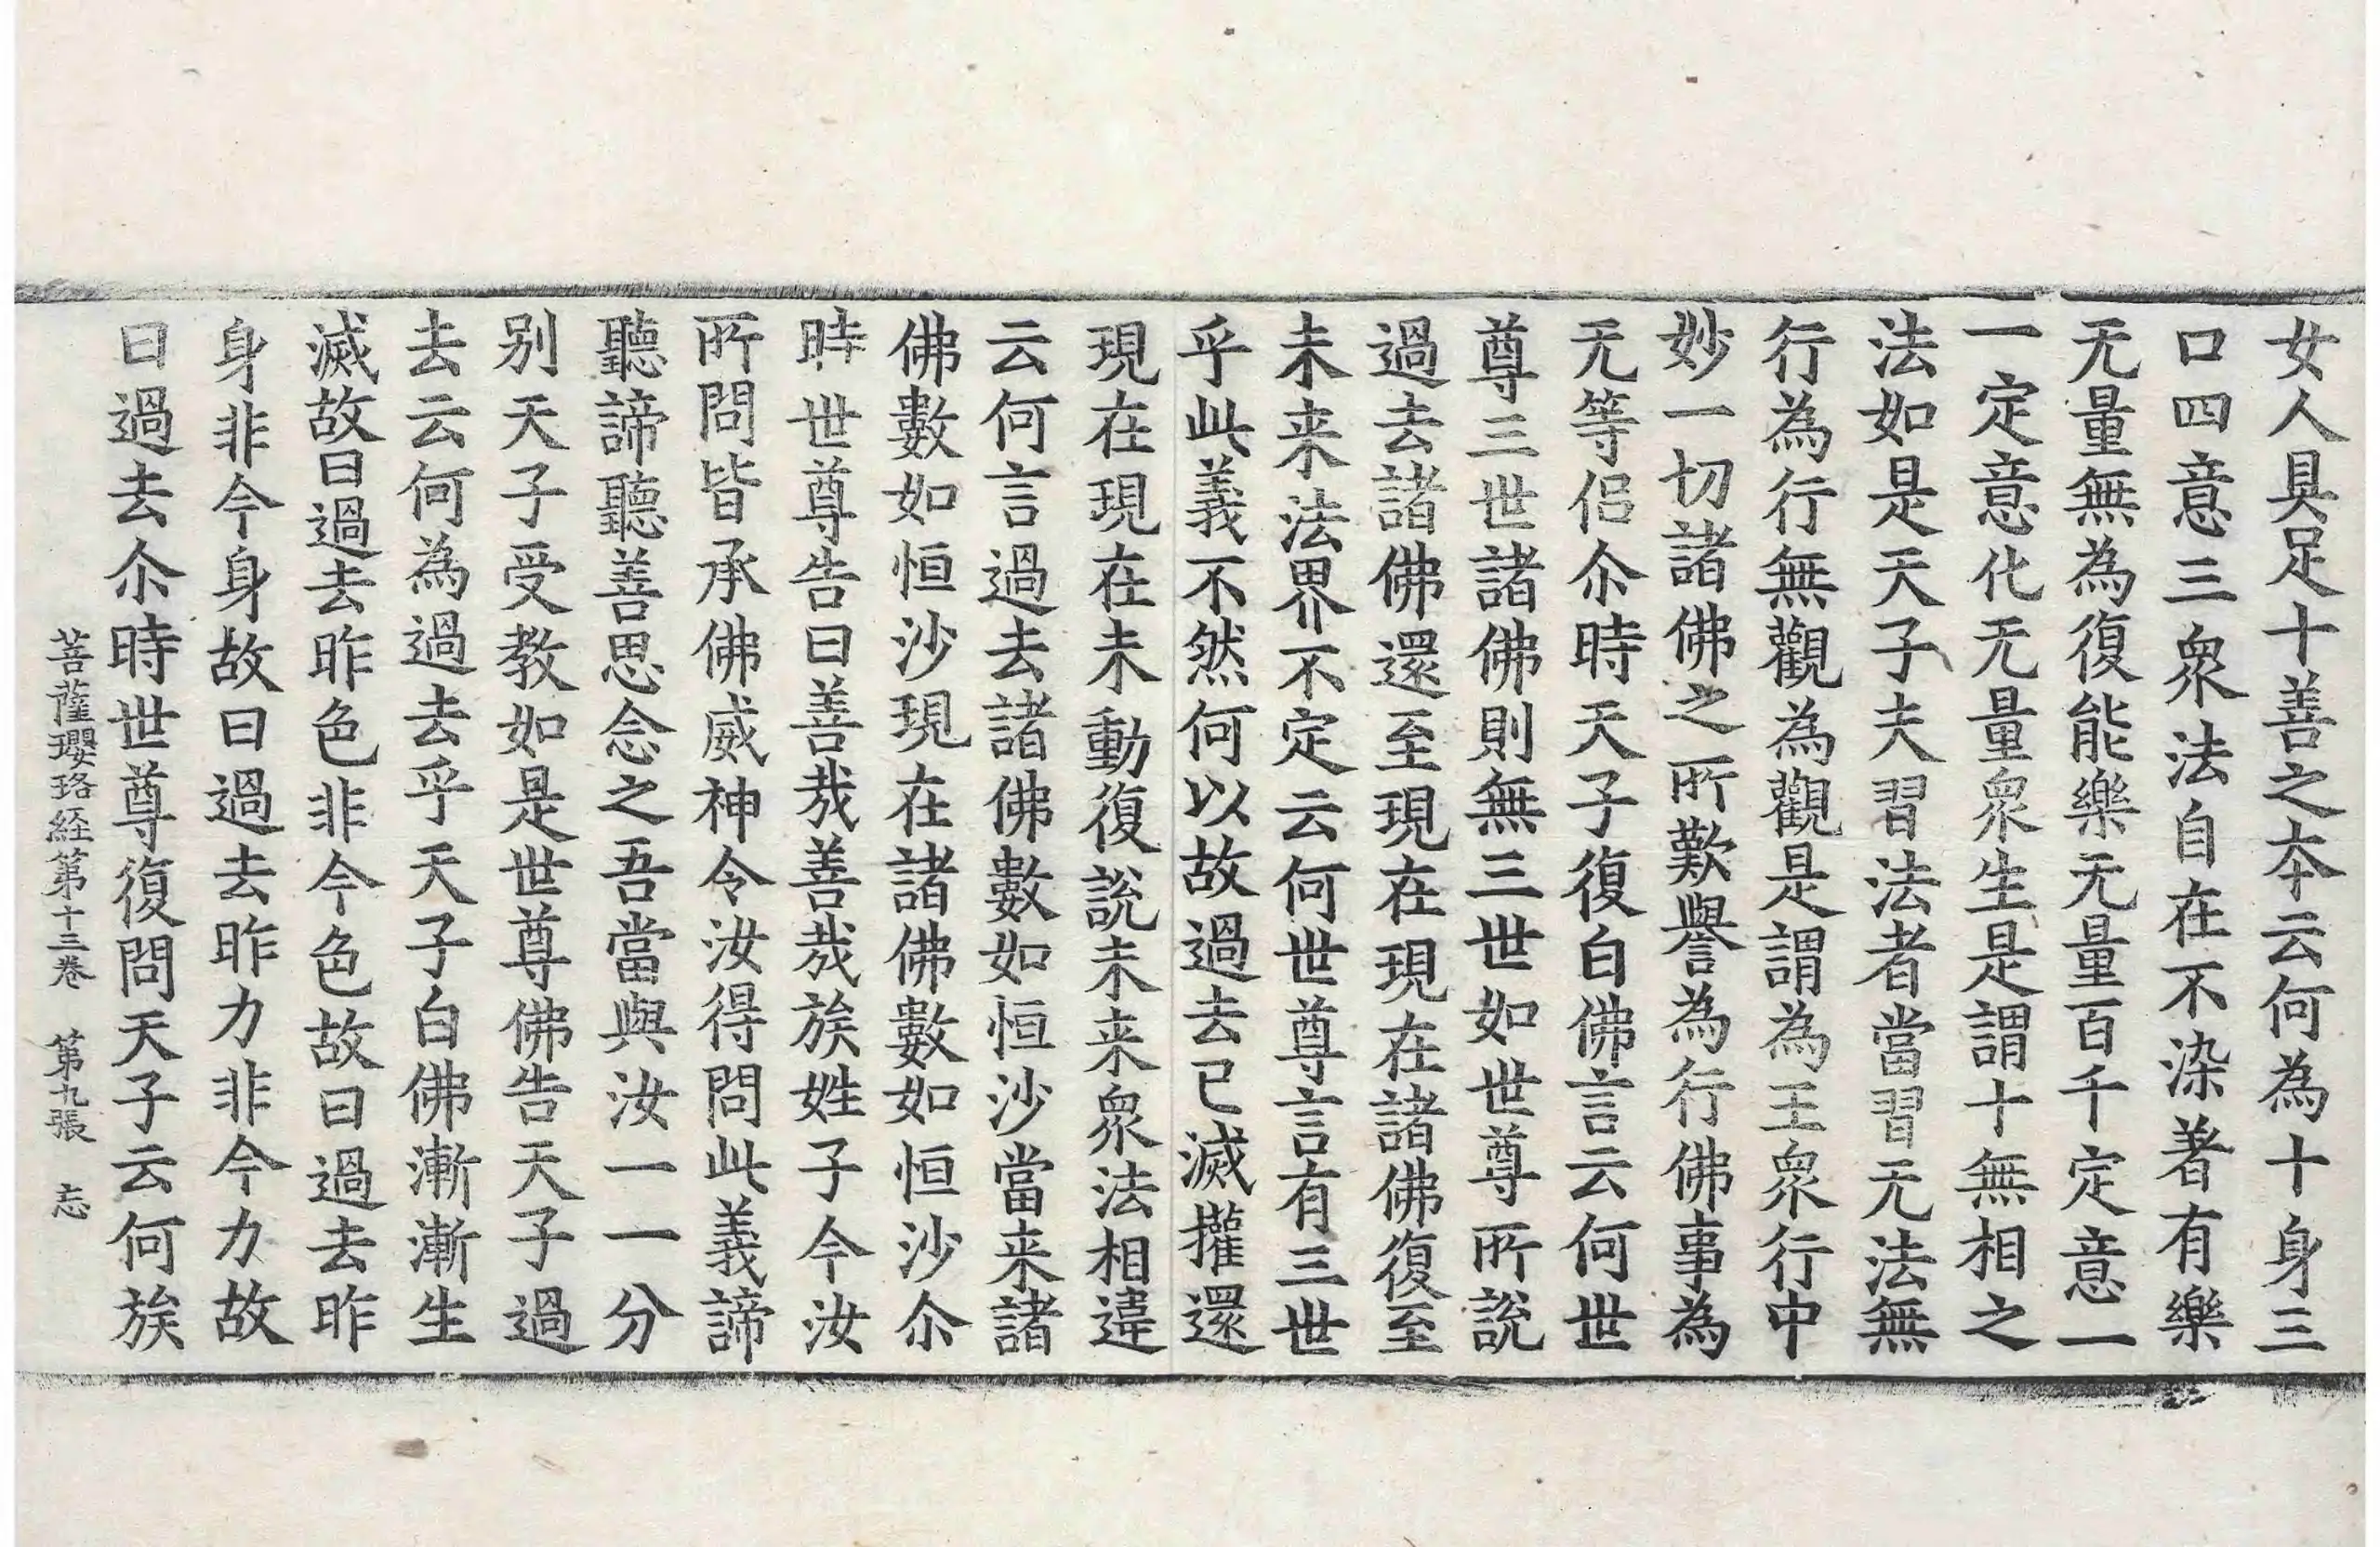 女人具足十善之本云何為十身三
口四意三衆法自在不染著有樂
无量無為復能樂无量百千定意一
一定意化无量衆生是謂十無相之
法如是天子夫習法者當習无法無
行為行無觀為觀是謂為王衆行中
妙一切諸佛之所歎譽為行佛事為
无等侶尒時天子復白佛言云何世
尊三世諸佛則無三世如世尊所說
過去諸佛還至現在現在諸佛復至
未来法界不定云何世尊言有三世
乎此義不然何以故過去已滅㩲還
現在現在未動復說未来衆法相違
云何言過去諸佛數如恒沙當来諸
佛數如恒沙現在諸佛數如恒沙尒
時世尊告曰善哉善哉族姓子今汝
所問皆承佛威神令汝得問此義諦
聽諦聽善思念之吾當與汝一一分
别天子受教如是世尊佛告天子過
去云何為過去乎天子白佛漸漸生
滅故曰過去昨色非今色故曰過去昨
身非今身故曰過去昨力非今力故
曰過去尒時世尊復問天子云何族
菩薩瓔珞経第十三卷 第九張 忘